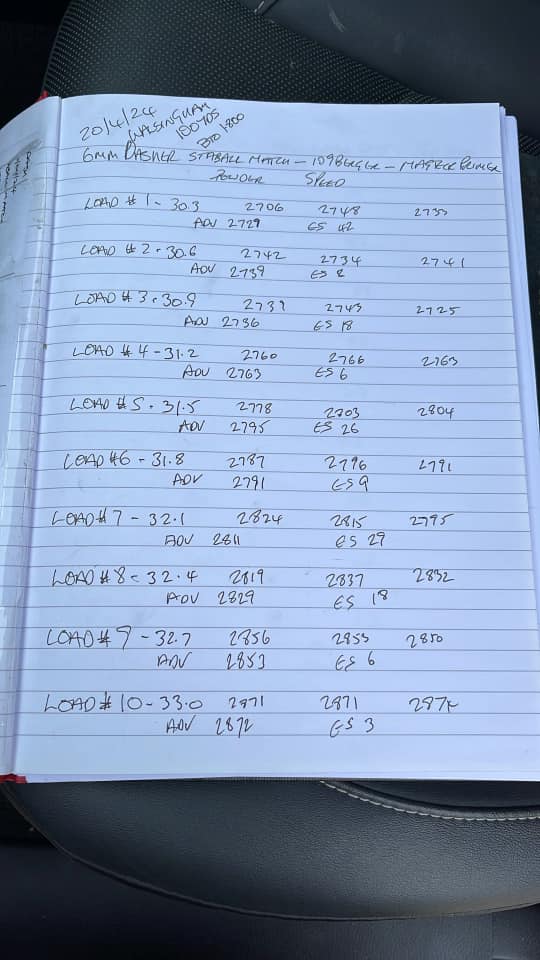 20/4/24
WALSINGHAM
100 YDS
6MM DASHER STABALL MATCH - 109 BERGER -
POWDER SPEED
LOAD # 1 - 30.3 2706 2748 2733
ADV 2729 ES 42
LOAD # 2 - 30.6 2742 2734 2741
ADV 2739 ES 8
LOAD # 3 - 30.9 2739 2743 2725
ADV 2736 ES 18
LOAD # 4 - 31.2 2760 2766 2763
ADV 2763 ES 6
LOAD # 5 - 31.5 2778 2803 2804
ADV 2795 ES 26
LOAD #6 - 31.8 2787 2796 2791
ADV 2791 ES 9
LOAD # 7 - 32.1 2824 2815 2795
ADV 2811 ES 29
LOAD # 8 - 32.4 2819 2837 2832
ADV 2829 ES 18
LOAD # 9 - 32.7 2856 2853 2850
ADV 2853 ES 6
LOAD # 10 - 33.0 2871 2871 2874
ADV 2872 ES 3